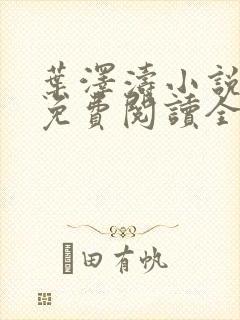 葉澤濤小說
免費閱讀全
田有帆